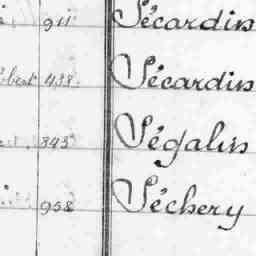 911 Sécardin
438 Sécardin
845 Ségalin
958 Séchery